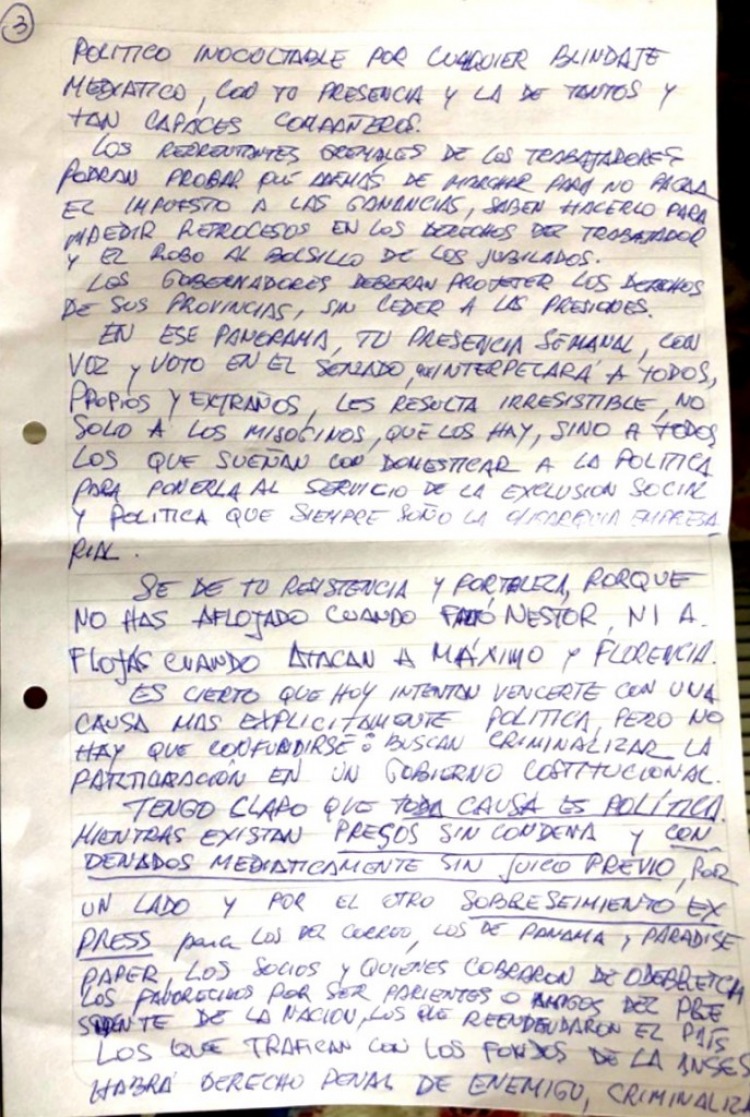 3
POLITICO INOCULTABLE POR CUALQUIER BLINDAJE
MEDIATICO, CON TU PRESENCIA Y LA DE TANTOS Y
TAN CAPACES COMPAÑEROS.
LOS REPRESENTANTES GREMIALES DE LOS TRABAJADORES
PODRAN PROBAR QUE ADEMÁS DE MARCHAR PARA NO PAGAR
EL IMPUESTO A LAS GANANCIAS, SABEN HACERLO PARA
IMPEDIR RETROCESOS EN LOS DERECHOS DEL TRABAJADOR
Y EL ROBO AL BOLSILLO DE LOS JUBILADOS.
LOS GOBERNADORES DEBERAN PROTEGER LOS DERECHOS
DE SUS PROVINCIAS, SIN CEDER A LAS PRESIONES.
EN ESE PANORAMA, TU PRESENCIA SEMANAL, CON
VOZ Y VOTO EN EL SENADO, INTERPELARÁ A TODOS,
PROPIOS Y EXTRAÑOS, LES RESULTA IRRESISTIBLE, NO
SOLO A LOS MISOGINOS, QUE LOS HAY, SINO A TODOS
LOS QUE SUEÑAN CON DOMESTICAR A LA POLITICA
PARA PONERLA AL SERVICIO DE LA EXCLUSION SOCIAL
Y POLITICA QUE SIEMPRE SOÑO LA OLIGARQUIA EMPRESA
RIAL.
SE DE TU RESISTENCIA Y FORTALEZA, PORQUE
NO HAS AFLOJADO CUANDO NESTOR, NI A
FLOJÁS CUANDO ATACAN A MÁXIMO Y FLORENCIA.
ES CIERTO QUE HOY INTENTAN VENCERTE CON UNA
CAUSA MAS EXPLICITAMENTE POLITICA, PERO NO
HAY QUE CONFUNDIRSE: BUSCAN CRIMINALIZAR LA
PARTICIPACIÓN EN UN GOBIERNO COSTITUCIONAL.
TENGO CLARO QUE TODA CAUSA ES POLÍTICA
MIENTRAS EXISTAN PRESOS SIN CONDENA Y CON
DENADOS MEDIATICAMENTE SIN JUICO PREVIO, POR
UN LADO Y POR EL OTRO SOBRESEIMIENTO EX
PRESS para LOS DEL CORREO, LOS DE PANAMA Y PARADISE
PAPER LOS SOCIOS Y QUIENES COBRARON DE ODEBRETCH
LOS FAVORECIDOS POR SER PARIENTES O AMIGOS DEL PRE
SIDENTE DE LA NACION, LOS QUE REENDEUDARON EL PAÍS
LOS QUE TRAFICAN CON LOS FONDOS DE LA ANSES
HABRÁ DERECHO PENAL DE ENEMIGO, CRIMINALIZ